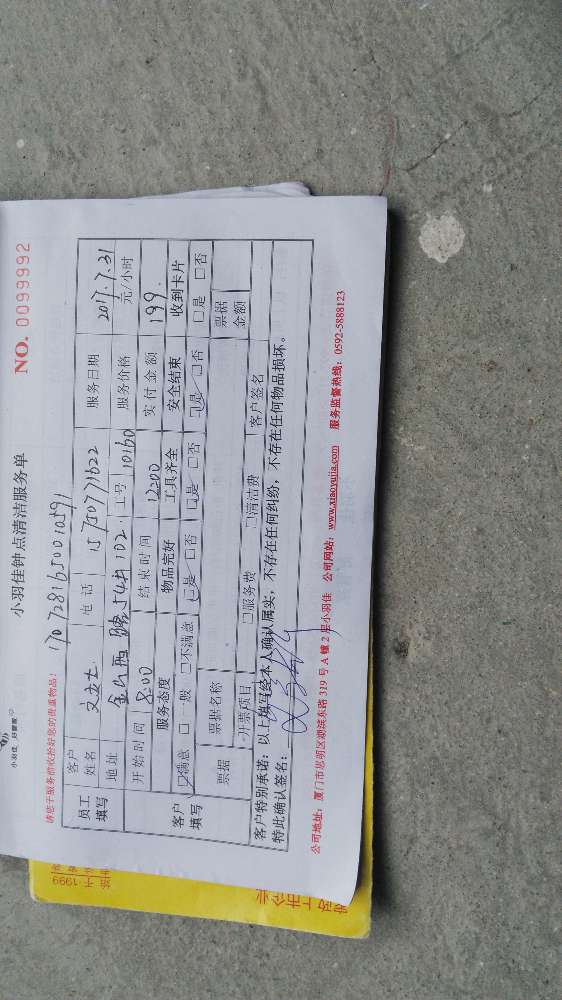 小羽佳钟点清洁服务单
NO. 0099992
请您于服务前收拾好您的贵重物品!
员工填写
客户姓名
电话 15750771622
服务日期 2017.7.31
地址
工号
服务价格 元/小时
开始时间 8:00 结束时间 12:00 实付金额 199
客户填写
服务态度 物品完好 工具齐全 安全结束 收到卡片
□满意 □一般 □不满意 □是 □否 □是 □否 □是 □否 □是 □否
票据 票据名称 票据金额
开票项目 □服务费 □清洁费 客户签名
客户特别承诺：以上填写经本人确认属实，不存在任何纠纷，不存在任何物品损坏。
特此确认签名：
公司地址：厦门市思明区湖滨东路 319 号 A 幢 2 层小羽佳 公司网站：www.xiaoyujia.com 服务监督热线：0592-5888123
1999